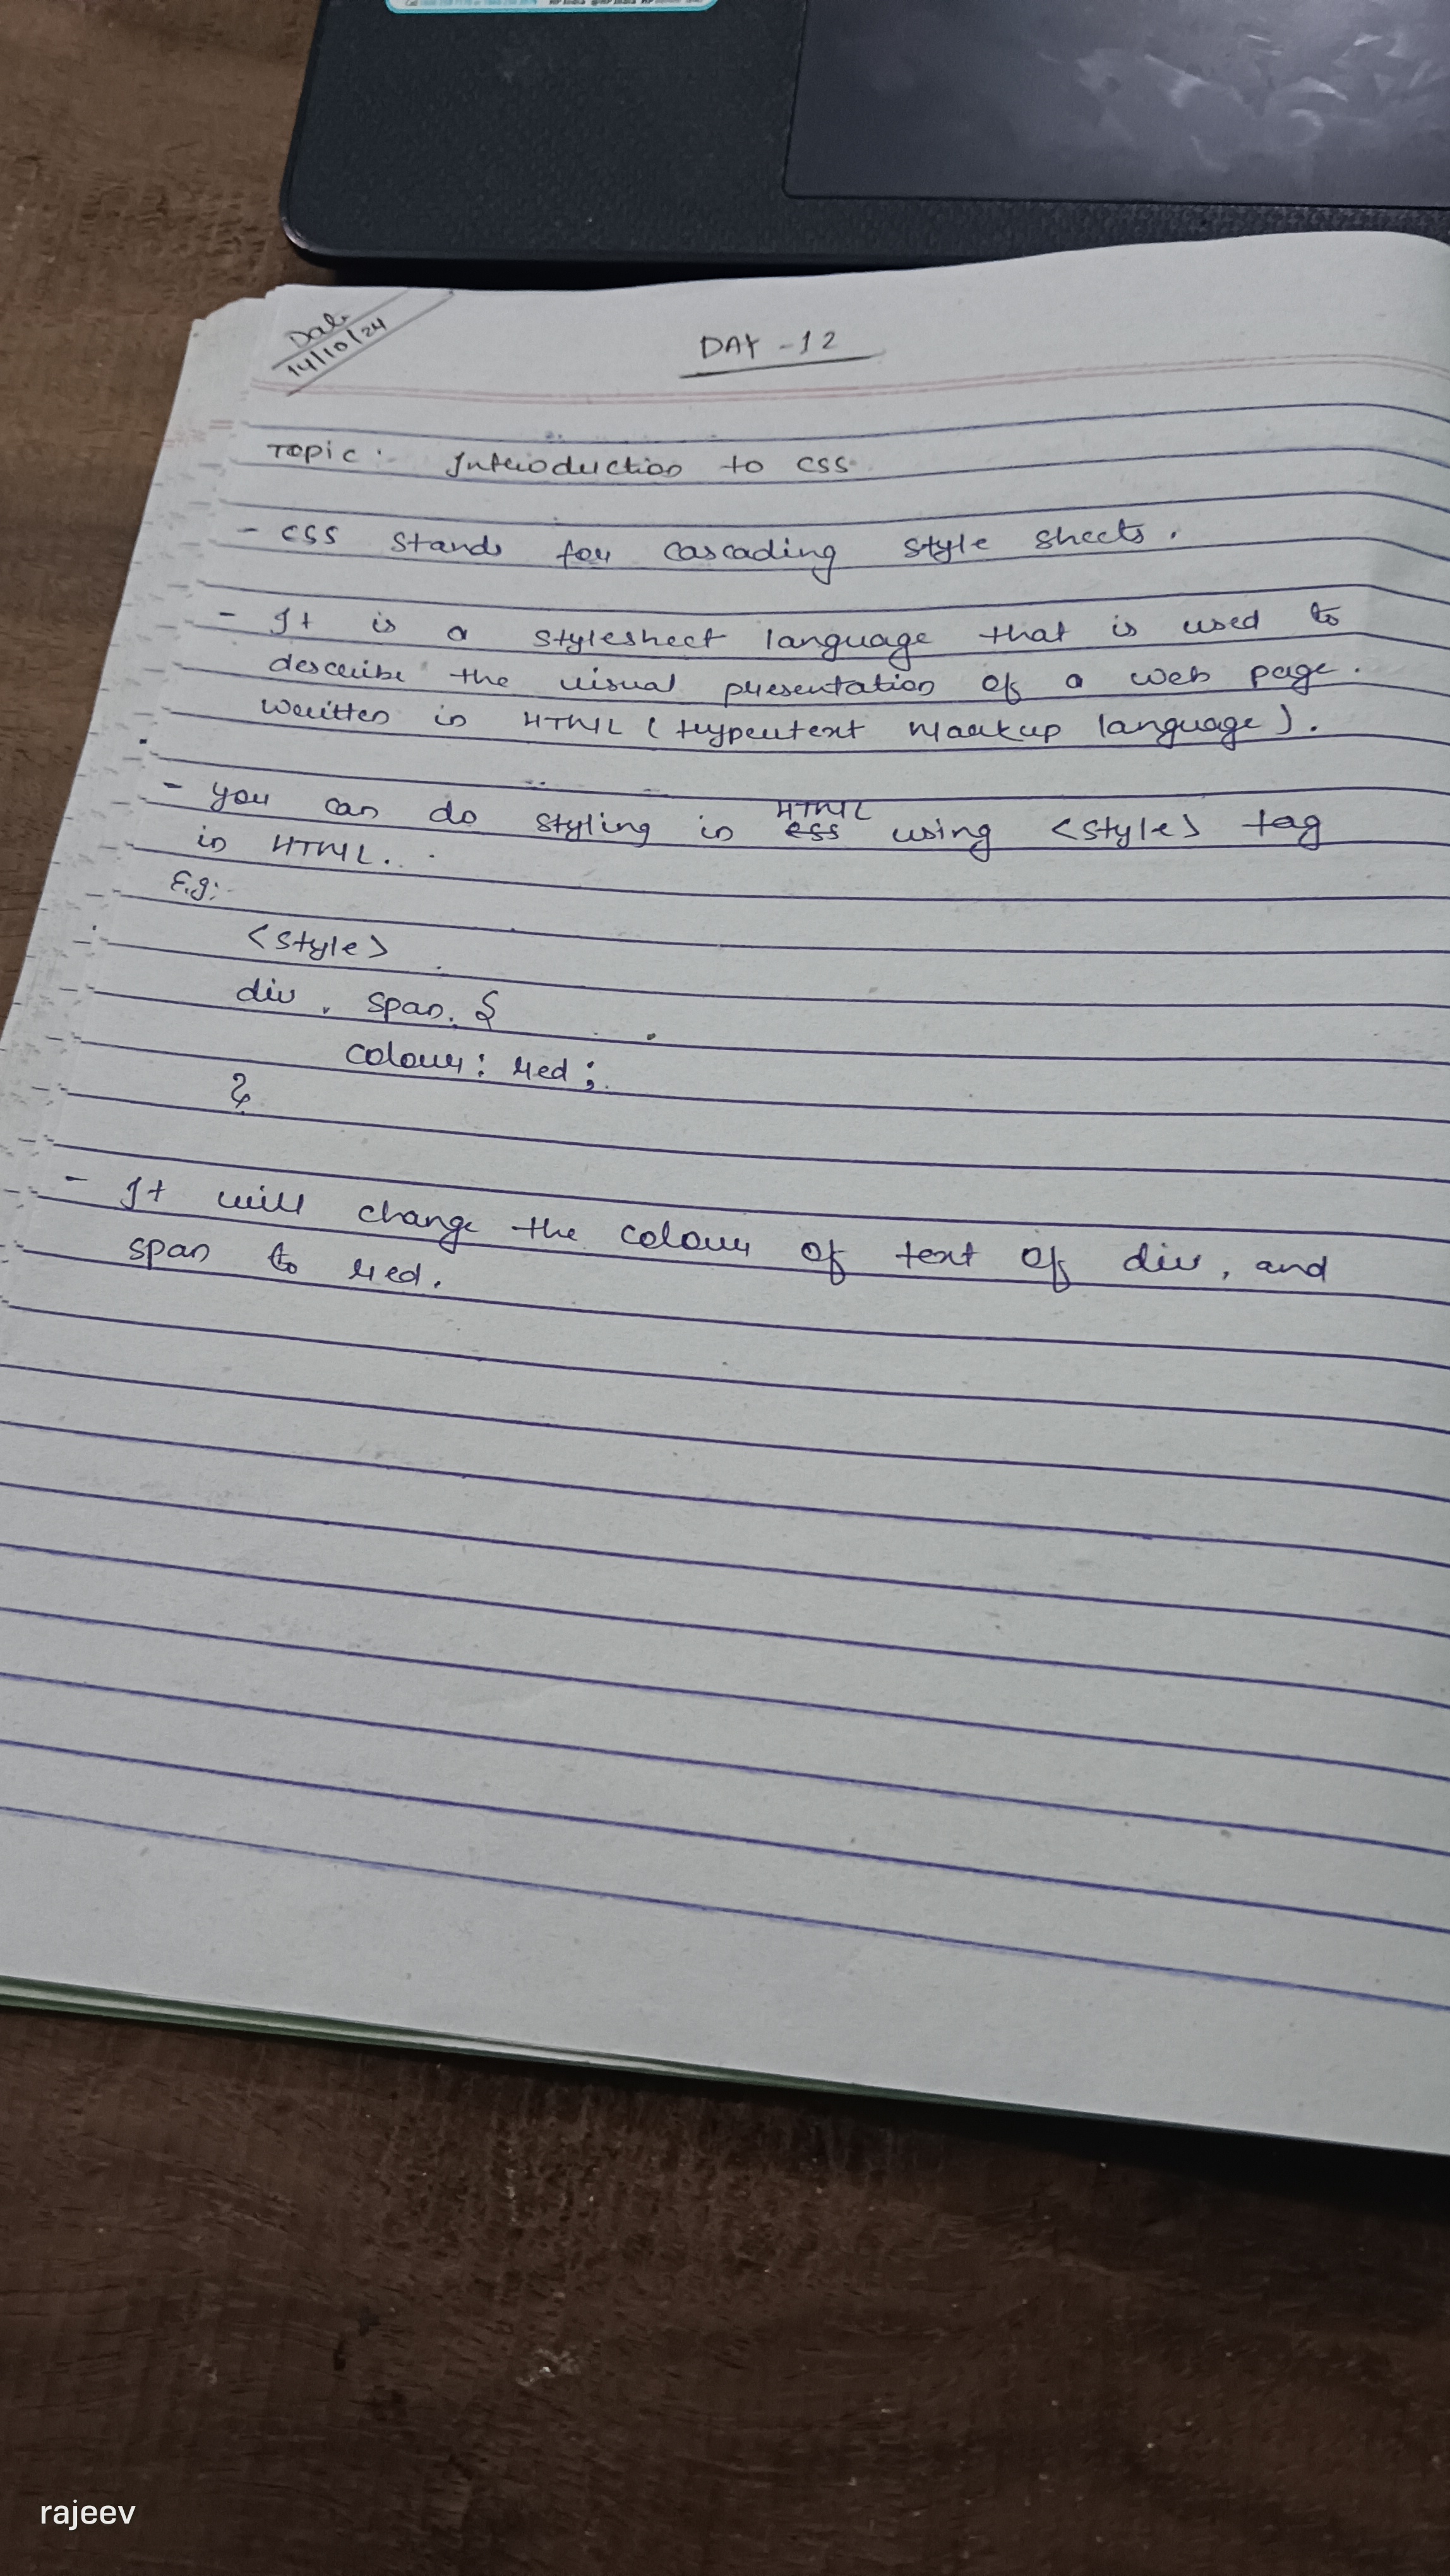 Date
14/10/24
DAY - 12
Topic: Introduction to CSS
- CSS stands for Cascading Style Sheets.
- It is a stylesheet language that is used to
describe the visual presentation of a web page.
written in HTML (Hypertext Markup language).
HTML
- you can do styling in css using <style> tag
in HTML.
E.g:
<style>
div, span. {
colour: red;
}
- It will change the colour of text of div, and
span to red.
rajeev